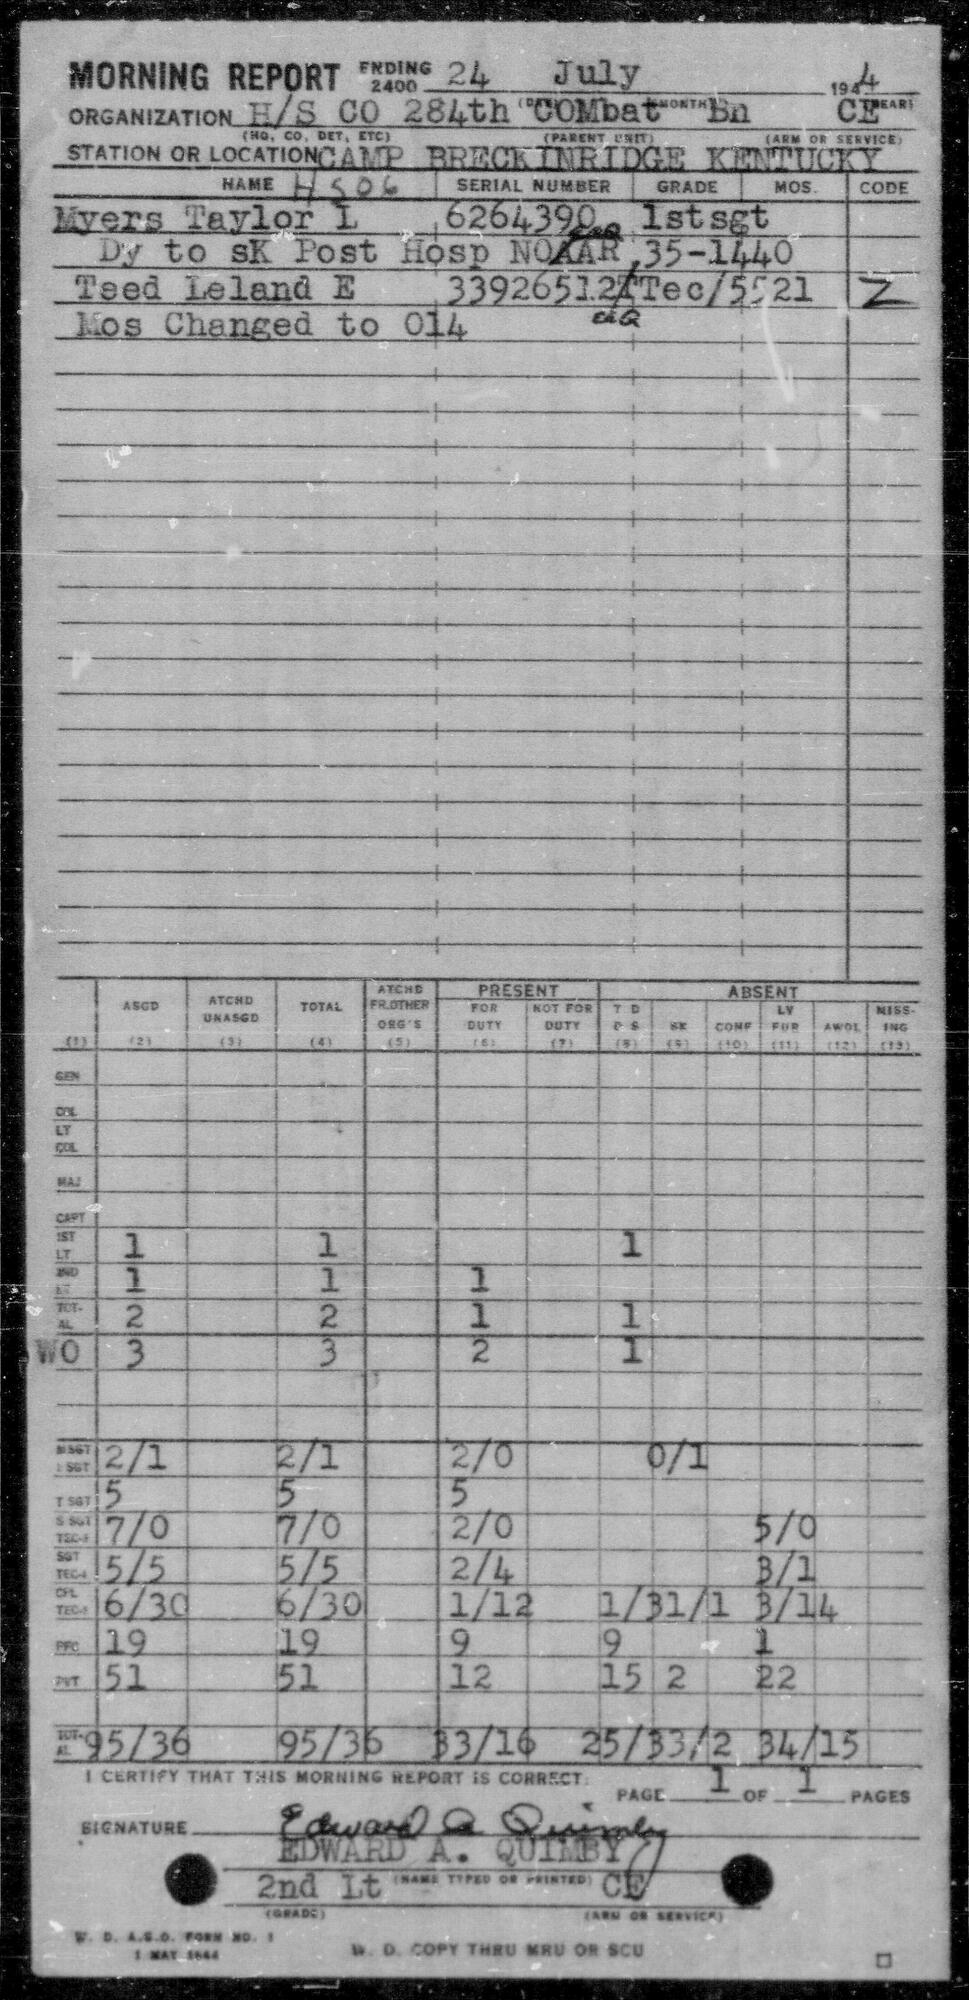 MORNING REPORT ENDING 2400 24 July 1944
ORGANIZATION H/S CO 284th COMbat Bn CE
(HQ, CO, DET, ETC) (PARENT UNIT) (ARM OR SERVICE)
STATION OR LOCATION CAMP BRECKINRIDGE KENTUCKY
NAME H506 SERIAL NUMBER GRADE MOS. CODE
Myers Taylor L 6264390 1stsgt
Dy to sK Post Hosp NO AR 35-1440
Tsed Leland E 33926512 Tec/5 521 Z
Mos Changed to 014
ASGD ATCHD UNASGD TOTAL ATCHD FR.OTHER ORG'S PRESENT ABSENT
FOR DUTY NOT FOR DUTY T D D S SK CONF LV FUR AWOL MISSING
(1) (2) (3) (4) (5) (6) (7) (8) (9) (10) (11) (12) (13)
GEN
COL
LT COL
MAJ
CAPT
1ST LT 1 1 1
2ND LT 1 1 1
TOTAL 2 2 1 1
WO 3 3 2 1
M SGT 1 SGT 2/1 2/1 2/0 0/1
T SGT 5 5 5
S SGT TEC-3 7/0 7/0 2/0 5/0
SGT TEC-4 5/5 5/5 2/4 3/1
CPL TEC-5 6/30 6/30 1/12 1/31/1 3/14
PFC 19 19 9 9 1
PVT 51 51 12 15 2 22
TOTAL 95/36 95/36 33/16 25/33/2 34/15
I CERTIFY THAT THIS MORNING REPORT IS CORRECT:
PAGE 1 OF 1 PAGES
SIGNATURE Edward A Quimby
EDWARD A. QUIMBY
2nd Lt (NAME TYPED OR PRINTED) CE
(GRADE) (ARM OR SERVICE)
W. D. A.G.O. FORM NO. 1
1 MAY 1944
W. D. COPY THRU MRU OR SCU